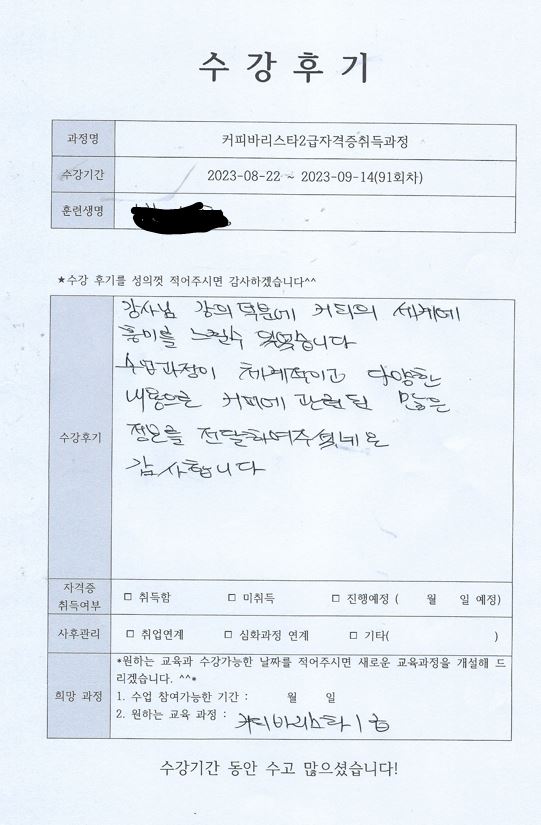 수강후기
과정명 커피바리스타2급자격증취득과정
수강기간 2023-08-22 ~ 2023-09-14(91회차)
훈련생명
★수강 후기를 성의껏 적어주시면 감사하겠습니다^^
강사님 강의 덕분에 커피의 세계에
흥미를 느낄수 있었습니다
수업과정이 체계적이고 다양한
내용으로 커피에 관련된 많은
정보를 전달하여주셨네요
감사합니다
수강후기
자격증
취득여부 □ 취득함 □ 미취득 □ 진행예정 ( 월 일 예정)
사후관리 □ 취업연계 □ 심화과정 연계 □ 기타( )
*원하는 교육과 수강가능한 날짜를 적어주시면 새로운 교육과정을 개설해 드
리겠습니다. ^^*
희망 과정
1. 수업 참여가능한 기간 : 월 일
2. 원하는 교육 과정 : 커피바리스타 1급
수강기간 동안 수고 많으셨습니다!